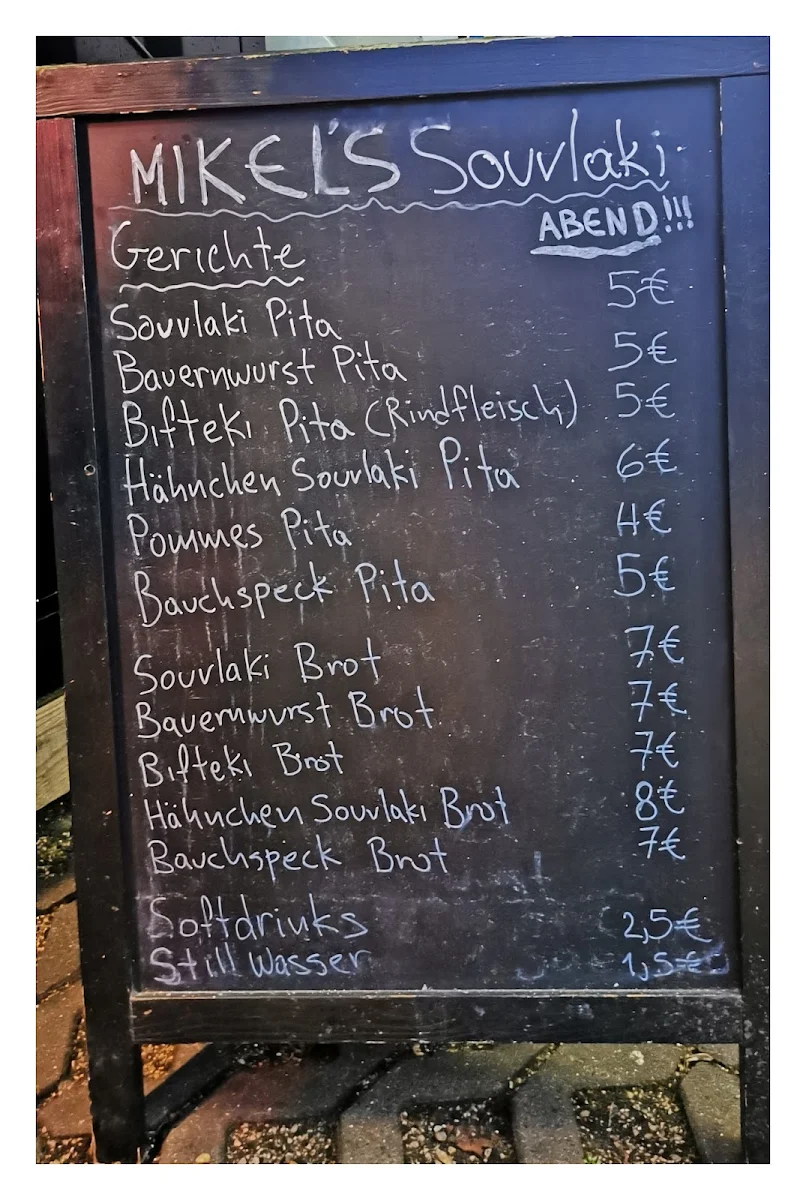 MIKEL'S Souvlaki
ABEND!!!
Gerichte
Souvlaki Pita 5€
Bauernwurst Pita 5€
Bifteki Pita (Rindfleisch) 5€
Hähnchen Souvlaki Pita 6€
Pommes Pita 4€
Bauchspeck Pita 5€
Souvlaki Brot 7€
Bauernwurst Brot 7€
Bifteki Brot 7€
Hähnchen Souvlaki Brot 8€
Bauchspeck Brot 7€
Softdrinks 2,5€
Still Wasser 1,5€